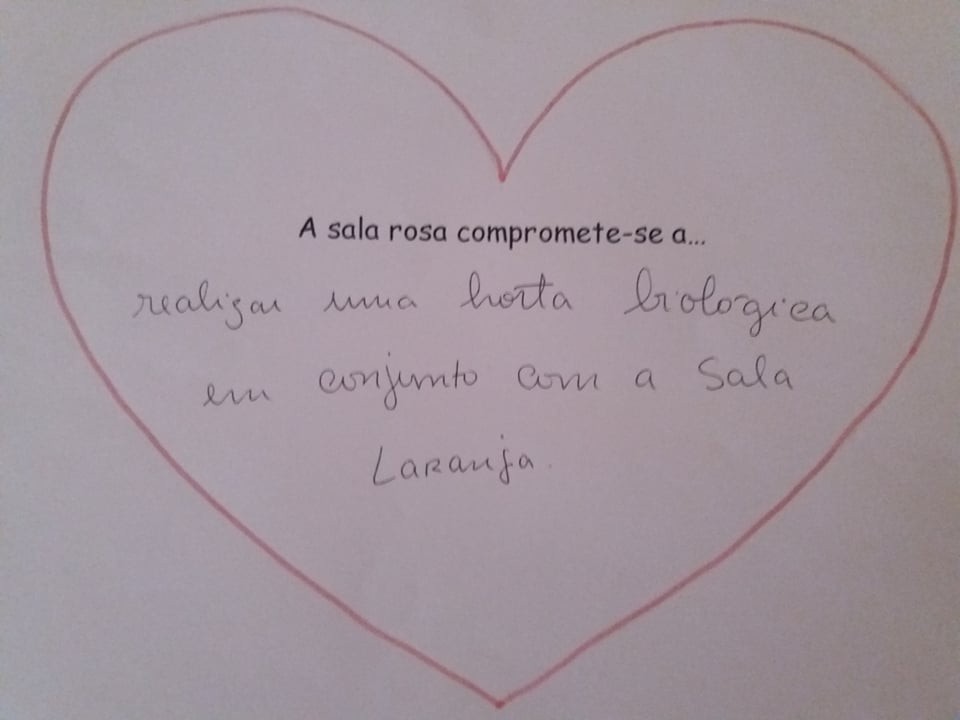 A sala rosa compromete-se a...
realizar uma horta biologica
em conjunto com a Sala
Laranja.